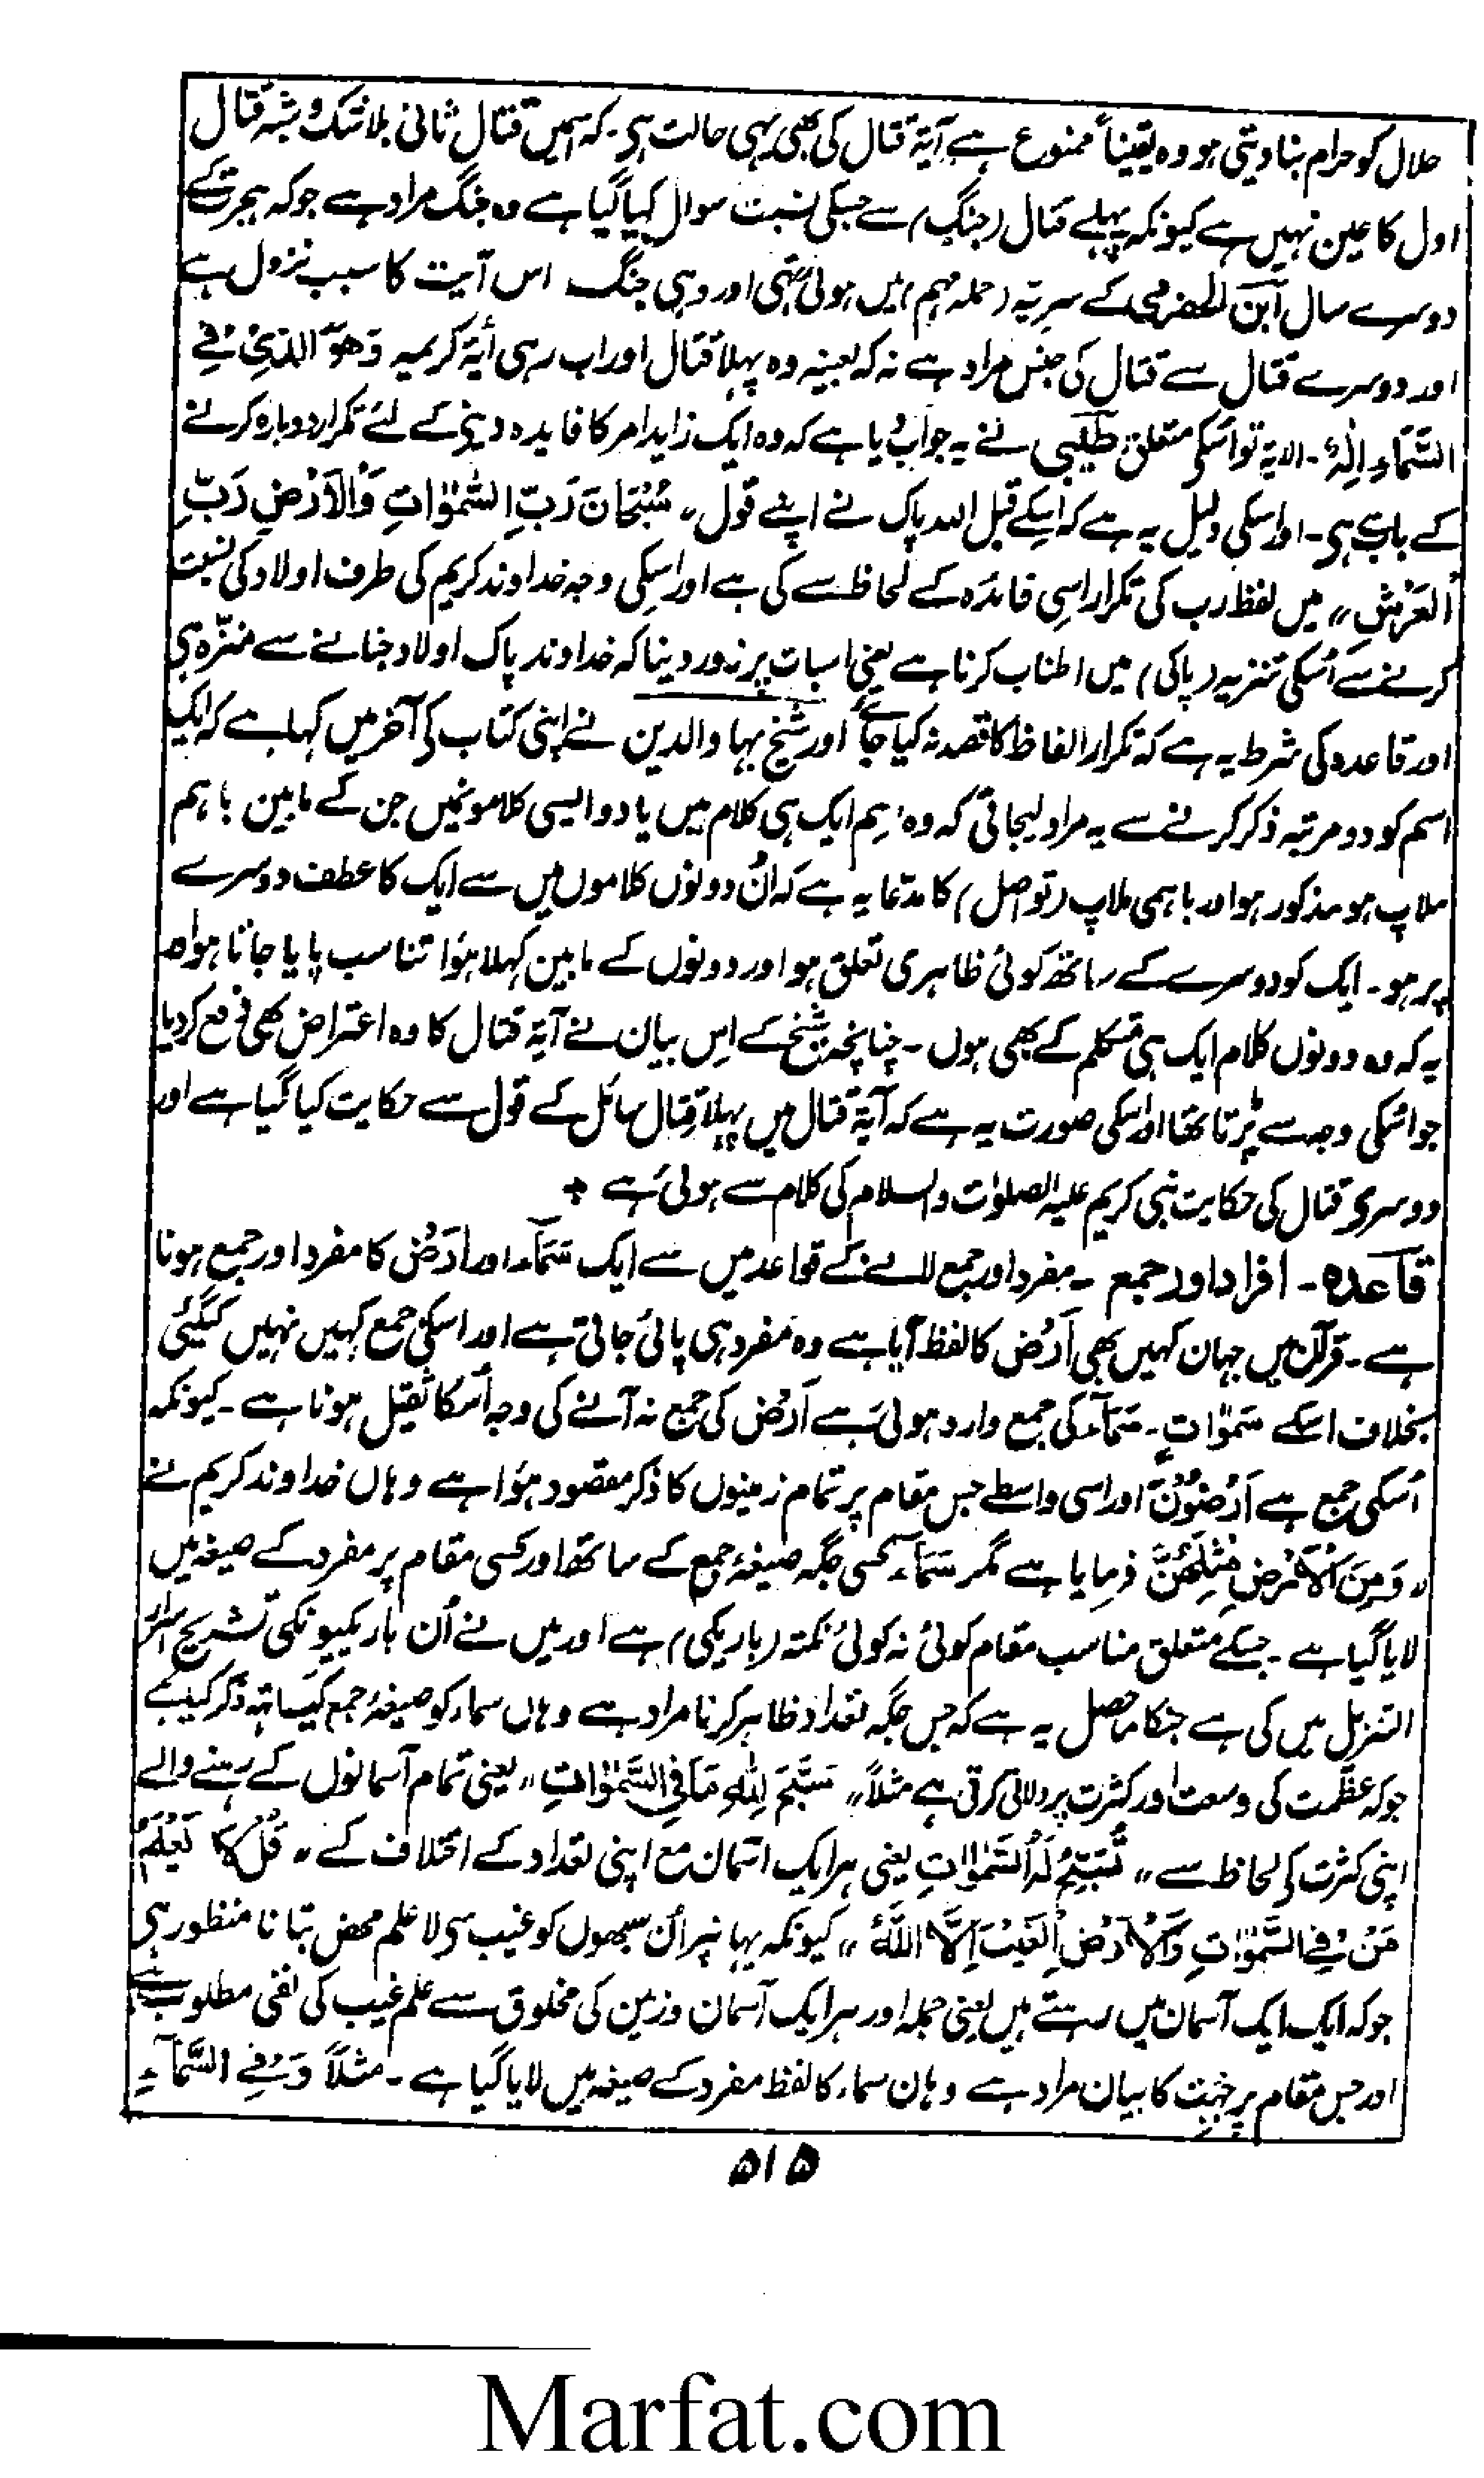 حلال کو حرام بنا دیتی ہو وہ یقیناً ممنوع ہے آیۃ قتال کی بھی یہی حالت ہی۔ کہ اسمیں قتال ثانی بلا شک و شبہ قتال
اول کا عین نہیں ہے کیونکہ پہلے قتال (جنگ) سے جسکی نسبت سوال کیا گیا ہے وہ جنگ مراد ہے جو کہ ہجرت کے
دوسرے سال ابن الحضرمی کے سریّہ (حملہ مہم) میں ہوئی تھی اور وہی جنگ اس آیت کا سبب نزول ہے
اور دوسرے قتال سے قتال کی جنس مراد ہے نہ کہ بعینہٖ وہ پہلا قتال اور اب رہی أیۃ کریمہ وَهُوَ الَّذِيْ فِي
السَّمَآءِ اِلٰهٌ۔ الایۃ تو اسکی متعلق طیّبی نے یہ جواب دیا ہے کہ وہ ایک زاید امر کا فایدہ دینے کے لئے تکرار دوبارہ کرنے
کے باب سے ہی۔ اور اسکی دلیل یہ ہے کہ اسکے قبل اللہ پاک نے اپنے قول ،، سُبْحَانَ رَبِّ السَّمٰوٰاتِ وَالْاَرْضِ رَبِّ
الْعَرْشِ ،، میں لفظ رب کی تکرار اسی فائدہ کے لحاظ سے کی ہے اور اسکی وجہ خداوند کریم کی طرف اولاد کی نسبت
کرنے سے اُسکی تنزیہ (پاکی) میں اطناب کرنا ہے یعنی اس بات پر زور دینا کہ خداوند پاک اولاد جنانے سے منزّہ ہی
اور قاعدہ کی شرط یہ ہے کہ تکرار الفاظ کا قصد نہ کیا جائے اور شیخ بہاؤالدین نے اپنی کتاب کی آخر میں کہا ہے کہ ایک
اسم کو دو مرتبہ ذکر کرنے سے یہ مراد لیجاتی کہ وہ اسم ایک ہی کلام میں یا دو ایسی کلامونمیں جن کے مابین باہم
ملاپ ہو مذکور ہو اور باہمی ملاپ (تواصل) کا مدّعا یہ ہے کہ اُن دونوں کلاموں میں سے ایک کا عطف دوسرے
پر ہو۔ ایک کو دوسرے کے ساتھ کوئی ظاہری تعلق ہو اور دونوں کے مابین کہلا ہوٗا تناسب پایا جاتا ہو اور
یہ کہ وہ دونوں کلام ایک ہی متکلم کے بھی ہوں۔ چنانچہ شیخ کے اِس بیان نے آیۃ قتال کا وہ اعتراض بھی دفع کر دیا
جو اسکی وجہ سے پڑتا تھا اور اسکی صورت یہ ہے کہ آیۃ قتال میں پہلا قتال سائل کے قول سے حکایت کیا گیا ہے اور
دوسری قتال کی حکایت نبی کریم علیہ الصلوٰت والسلام کی کلام سے ہوئی ہے
قاعدہ۔ افراد اور جمع۔ مفرد اور جمع لانے کے قواعد میں سے ایک سَمَآء اور اَرَضْ کا مفرد اور جمع ہونا
ہے۔ قرآن میں جہان کہیں بھی اَرَضْ کا لفظ آیا ہے وہ مفرد ہی پائی جاتی ہے اور اسکی جمع کہیں نہیں کیگئی
بخلاف اسکے سَمٰوٰاتٍ۔ سَمَآء کی جمع وارد ہوئی ہے اَرَضْ کی جمع نہ آنے کی وجہ اُسکا ثقیل ہونا ہے۔ کیونکہ
اُسکی جمع ہے اَرَضُوْنَ اور اسی واسطے جس مقام پر تمام زمینوں کا ذکر مقصود ہوٗا ہے وہاں خداوند کریم نے
،، وَمِنَ الْاَرْضِ مِثْلَهُنَّ فرمایا ہے مگر سَمَآء کسی جگہ صیغۂ جمع کے ساتھ اور کسی مقام پر مفرد کے صیغہ میں
لایا گیا ہے۔ جسکے متعلق مناسب مقام کوئی نہ کوئی نکتہ (باریکی) ہے اور میں نے اُن باریکیونکی تشریح اسرار
التنزیل میں کی ہے جنکا ماحصل یہ ہے کہ جس جگہ تعداد ظاہر کرنا مراد ہے وہاں سماء کو صیغۂ جمع کیساتھ ذکر کیا ہے
جو کہ عظمت کی وسعت اور کثرت پر دلالت کرتی ہے مثلاً ،، سَبَّحَ لِلّٰهِ مَا فِي السَّمٰوٰاتِ ،، یعنی تمام آسمانوں کے رہنے والے
اپنی کثرت کی لحاظ سے ،، تُسَبِّحُ لَهُ السَّمٰوٰاتِ یعنی ہر ایک آسمان مع اپنی تعداد کے اختلاف کے ،، قُلْ لَا يَعْلَمُ
مَنْ فِي السَّمٰوٰاتِ وَالْاَرْضِ الْغَيْبَ اِلَّا اللّٰهُ ،، کیونکہ یہانپر اُن سبھوں کو غیب سی لا علم محض بتانا منظور ہی
جو کہ ایک ایک آسمان میں رہتے ہیں یعنی جملہ اور ہر ایک آسمان و زمین کی مخلوق سے علم غیب کی نفی مطلوب ہے
اور جس مقام پر جہت کا بیان مراد ہے وہان سماء کا لفظ مفرد کے صیغہ میں لایا گیا ہے۔ مثلاً وَفِي السَّمَآءِ
۵۱۵
Marfat.com